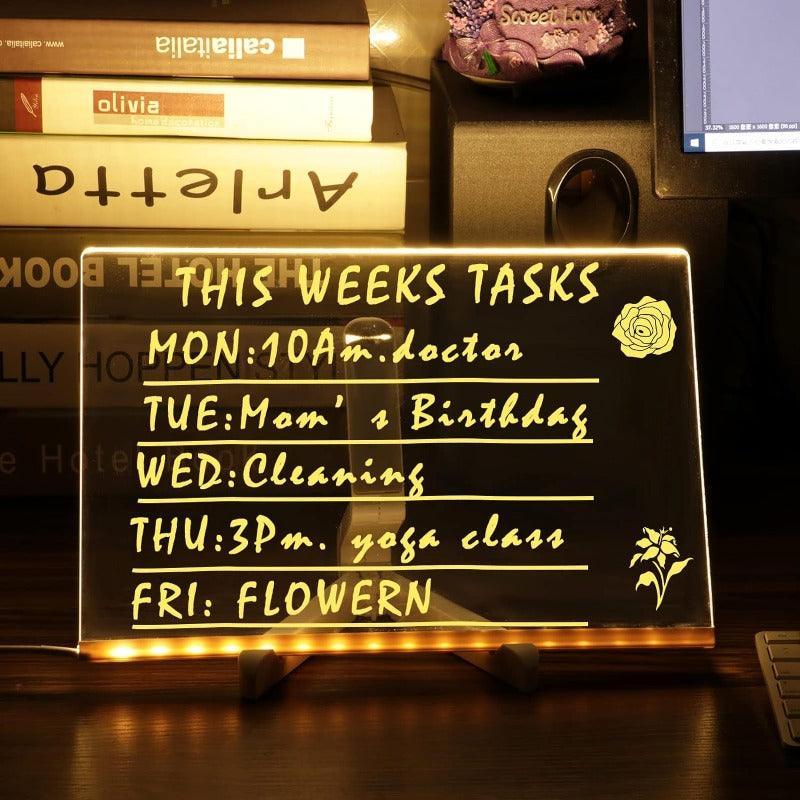 www.caliaitalia.
caliaitalia
olivia
home decoration
Arletta
THE HOTEL BOOK
Sweet Love
THIS WEEKS TASKS
MON:10Am.doctor
TUE:Mom's Birthdag
WED:Cleaning
THU:3Pm. yoga class
FRI: FLOWERN